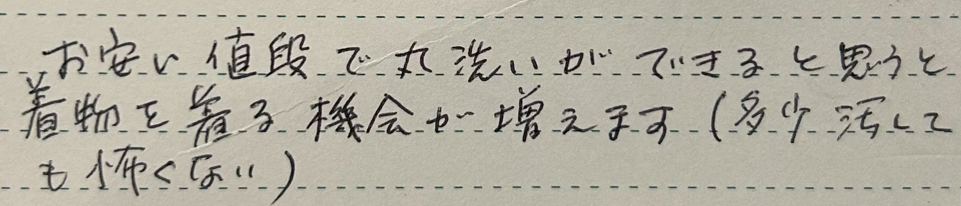 お安い値段で丸洗いができると思うと
着物を着る機会が増えます(多少汚して
も怖くない)